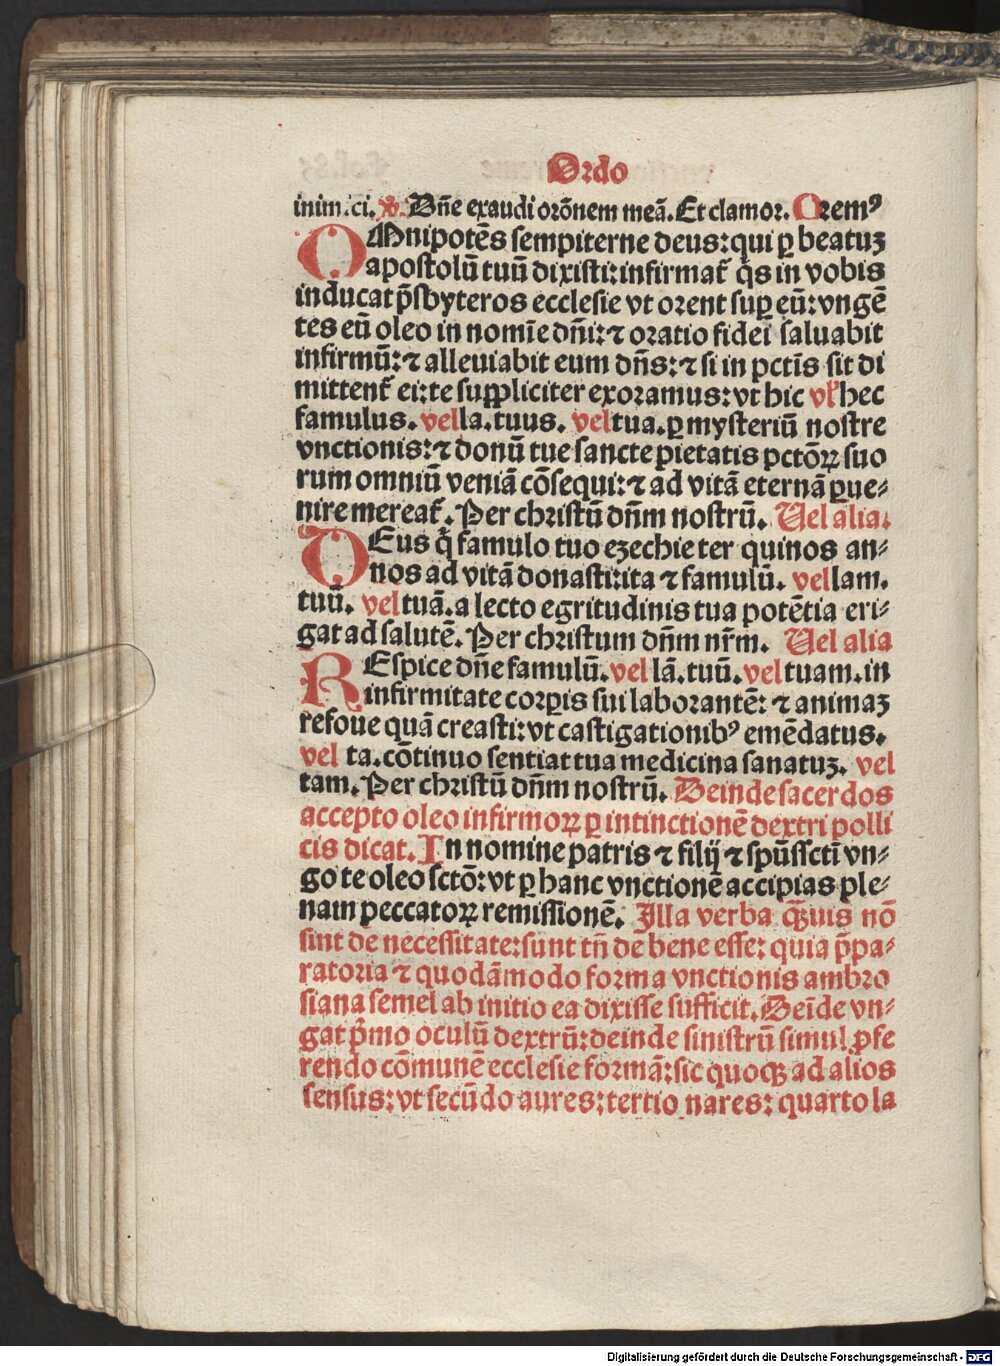 Ordo
inimici. ℣. Dñe exaudi orōnem meā. Et clamor. Oremꝰ
OMnipotēs sempiterne deus: qui ꝑ beatuꝫ
apostolū tuū dixisti: infirmat᷑ q̇s in vobis
inducat p̄sbyteros ecclesie vt orent suꝑ eū: vngē
tes eū oleo in nomīe dñi: ⁊ oratio fidei saluabit
infirmū: ⁊ alleuiabit eum dñs: ⁊ si in pctīs sit di
mittent᷑ ei: te supꝑliciter exoramus: vt hic vl̓ hec
famulus. vel la. tuus. vel tua. ꝑ mysteriū nostre
vnctionis: ⁊ donū tue sancte pietatis pctōꝝ suo
rum omniū veniā cōsequi: ⁊ ad vitā eternā ꝑue⸗
nire mereat᷑. Per christū dñm nostrū. Uel alia.
DEus q̇ famulo tuo ezechie ter quinos an⸗
nos ad vitā donasti: ita ⁊ famulū. vel lam.
tuū. vel tuā. a lecto egritudinis tua potētia eri⸗
gat ad salutē. Per christum dñm nr̄m. Uel alia
REspice dñe famulū. vel lā. tuū. vel tuam. in
infirmitate corꝑis sui laborantē: ⁊ animaꝫ
refoue quā creasti: vt castigationibꝰ emēdatus.
vel ta. cōtinuo sentiat tua medicina sanatuꝫ. vel
tam. Per christū dñm nostrū. Deinde sacerdos
accepto oleo infirmoꝝ ꝑ intinctionē dextri polli
cis dicat. In nomine patris ⁊ filij ⁊ spūssctī vn⸗
go te oleo sctō: vt ꝑ hanc vnctionē accipias ple⸗
nam peccatoꝝ remissionē. Illa verba q̄ꝫuis nō
sint de necessitate: sunt tn̄ de bene esse: quia p̄pa⸗
ratoria ⁊ quodāmodo forma vnctionis ambro
siana semel ab initio ea dixisse sufficit. Deīde vn⸗
gat p̄mo oculū dextrū: deinde sinistrū simul ꝓfe
rendo cōmunē ecclesie formā: sic quoqꝫ ad alios
sensus: vt secūdo aures: tertio nares: quarto la
Digitalisierung gefördert durch die Deutsche Forschungsgemeinschaft - DFG